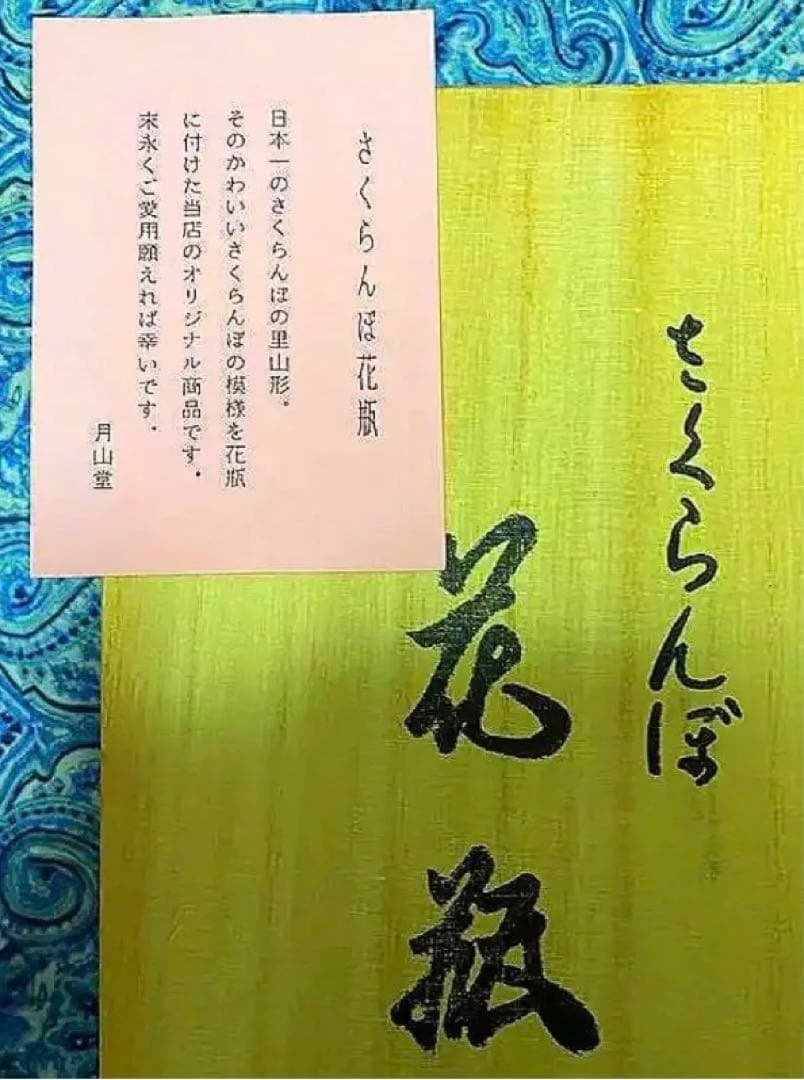 さくらんぼ花瓶
日本一のさくらんぼの里山形。
そのかわいいさくらんぼの模様を花瓶
に付けた当店のオリジナル商品です。
末永くご愛用願えれば幸いです。
月山堂
さくらんぼ
花瓶